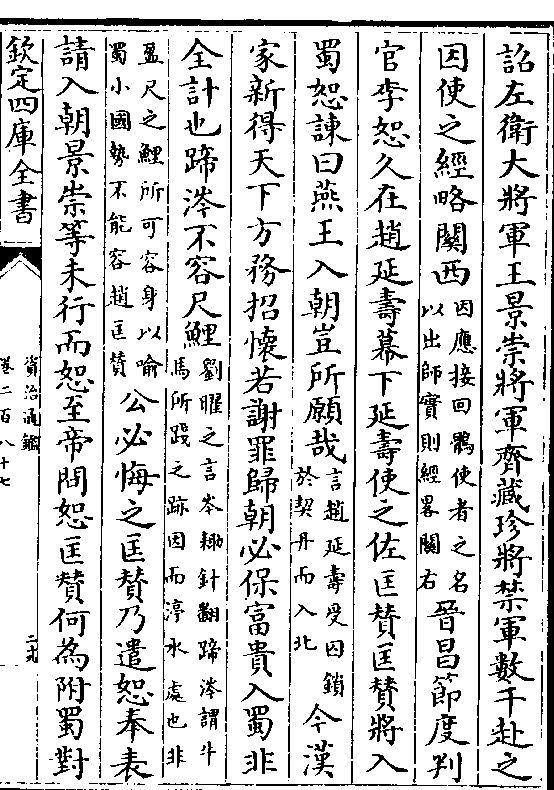 詔左衛大將軍王景崇將軍齊藏珍將禁軍數千赴之
因使之經略關西因應接回鶻使者之名以出師實則經畧關右晉昌節度判
官李恕久在趙延壽幕下延壽使之佐匡贊匡贊將入
蜀恕諫曰燕王入朝豈所願哉言趙延壽受囚鎖於契丹而入北今漢
家新得天下方務招懷若謝罪歸朝必保富貴入蜀非
全計也蹄涔不容尺鯉劉曜之言岑耡針翻蹄涔謂牛馬所踐之跡因而渟水處也非
盈尺之鯉所可容身以喻蜀小國勢不能容趙匡贊公必悔之匡贊乃遣恕奉表
請入朝景崇等未行而恕至帝問恕匡贊何為附蜀對
欽定四庫全書
資治通鑑
卷二百八十七
二十九